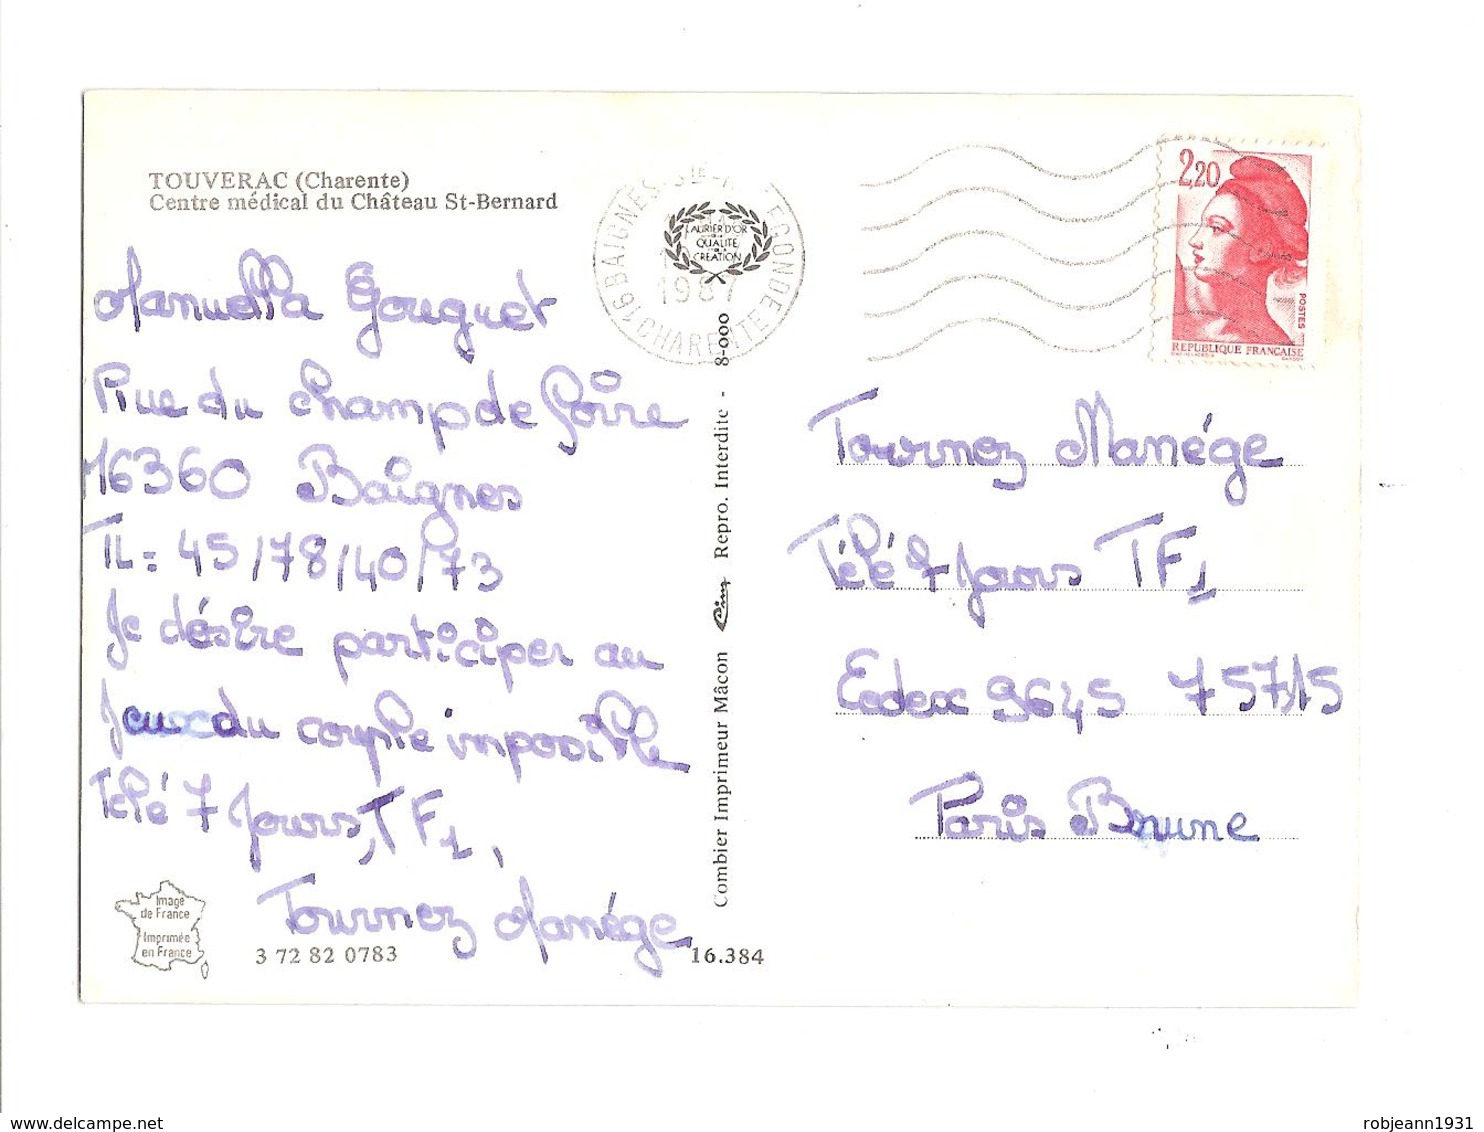 TOUVERAC (Charente)
Centre médical du Château St-Bernard
Manuella Gouguet
Rue du champ de foire
16360 Baignes
TL = 45/78/40/73
Je désire participer au
Jeux du couple impossible
Télé 7 Jours, TF1,
Tournez Manége
Image
de France
Imprimée
en France
3 72 82 0783
16.384
Combier Imprimeur Mâcon Cim Repro. Interdite - 8-000
LAURIER D'OR
DE LA
QUALITÉ
CRÉATION
16 BAIGNES-STE-
1987
CHARENTE
2,20
POSTES
REPUBLIQUE FRANCAISE
Tournez Manége
Télé 7 Jours TF1
Cedex 9645 75715
Paris Brune
www.delcampe.net
robjeann1931